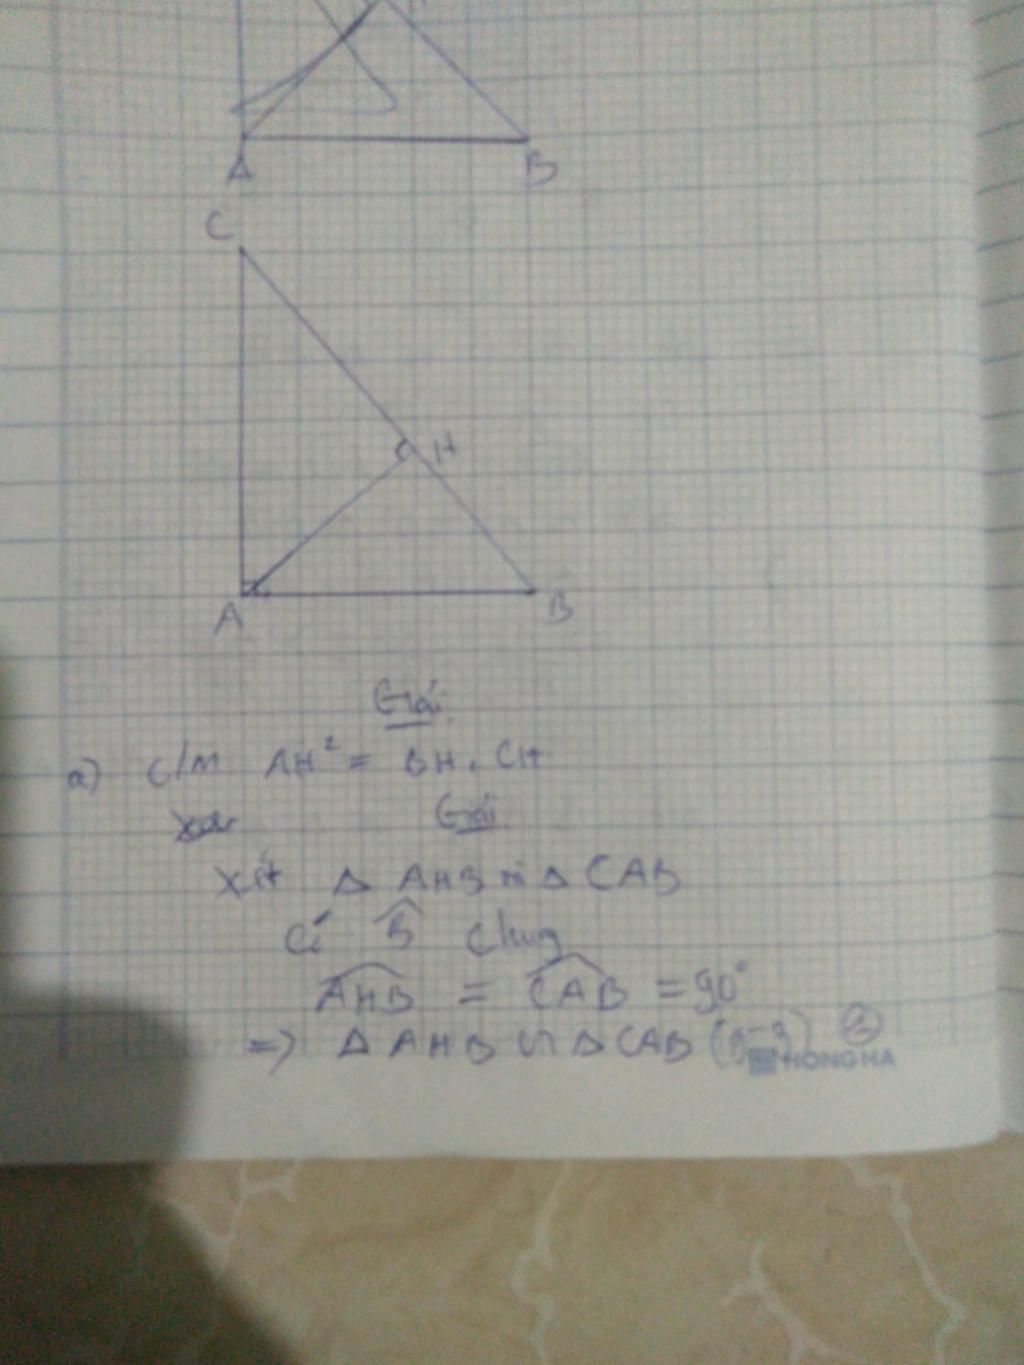 A B
C
H
A B
Giải
a) C/M AH² = BH . CH
Giải
Xét Δ AHB và Δ CAB
Có B̂ chung
AHB = CAB = 90°
=> Δ AHB ∽ Δ CAB (g-g) ②
HONG HA